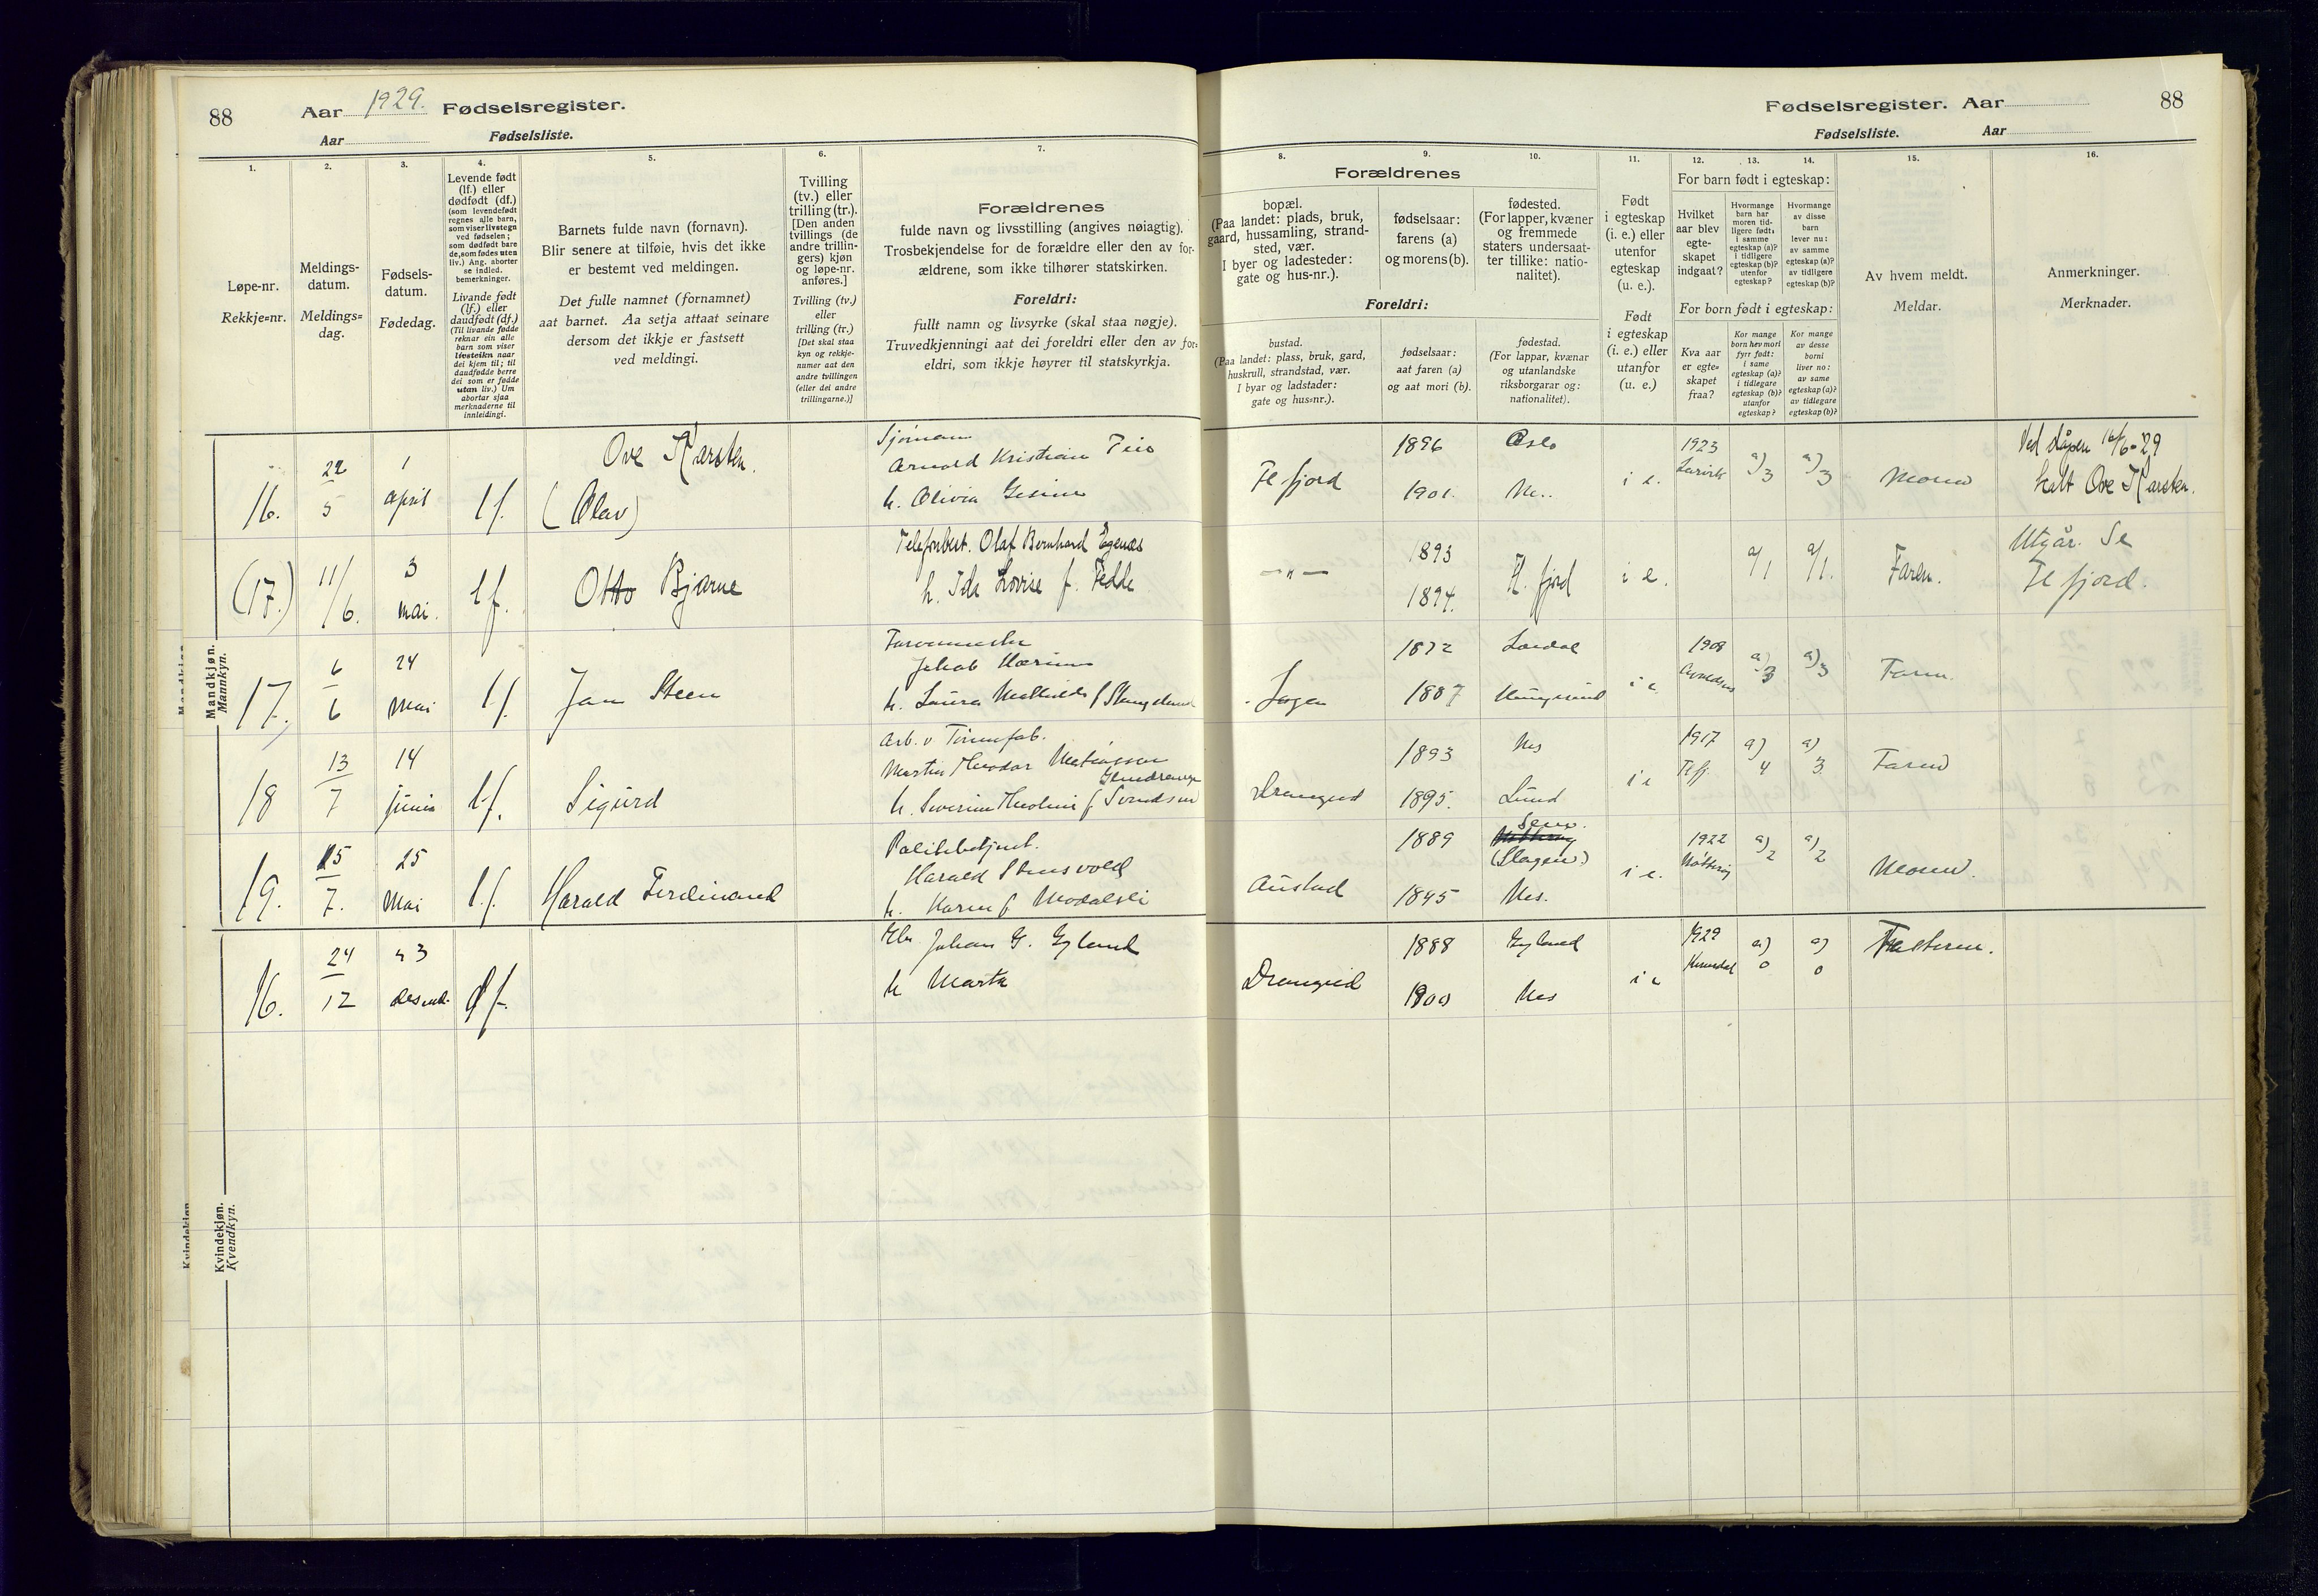 88
Aar 1929. Fødselsregister.
Aar
Fødselsliste.
1.
Løpe-nr.
Rekkje=nr.
2.
Meldings-
datum.
Meldings=
dag.
3.
Fødsels-
datum.
Fødedag.
4.
Levende født
(lf.) eller
dødfødt (df.)
(som levendefødt
regnes alle barn,
som viser livstegn
ved fødselen;
som dødfødt bare
de, som fødes uten
liv.) Ang. aborter
se indled.
bemerkninger.
Livande født
(lf.) eller
daudfødt (df.)
(Til livande fødde
reknar ein alle
barn som viser
livsteikn naar
dei kjem til; til
daudfødde berre
dei som er fødde
utan liv.) Um
abortar sjaa
merknaderne til
innleidingi.
5.
Barnets fulde navn (fornavn).
Blir senere at tilføie, hvis det ikke
er bestemt ved meldingen.
Det fulle namnet (fornamnet)
aat barnet. Aa setja attaat seinare
dersom det ikkje er fastsett
ved meldingi.
6.
Tvilling
(tv.) eller
trilling (tr.).
[Den anden
tvillings (de
andre trillin-
gers) kjøn
og løpe-nr.
anføres.]
Tvilling (tv.)
eller
trilling (tr.)
[Det skal staa
kyn og rekkje-
numer aat den
andre tvillingen
(eller dei andre
trillingarne.)]
7.
Forældrenes
fulde navn og livsstilling (angives nøiagtig).
Trosbekjendelse for de forældre eller den av for-
ældrene, som ikke tilhører statskirken.
Foreldri:
fullt namn og livsyrke (skal staa nøgje).
Truvedkjenningi aat dei foreldri eller den av for=
eldri, som ikkje høyrer til statskyrkja.
Fødselsregister. Aar
88
Fødselsliste.
Aar
Forældrenes
8.
bopæl.
(Paa landet: plads, bruk,
gaard, hussamling, strand-
sted, vær.
I byer og ladesteder:
gate og hus-nr.).
9.
fødselsaar:
farens (a)
og morens (b).
10.
fødested.
(For lapper, kvæner
og fremmede
staters undersaat-
ter tillike: natio-
nalitet).
Foreldri:
bustad.
(Paa landet: plass, bruk, gard,
huskrull, strandstad, vær.
I byar og ladstader:
gate og hus=nr.).
fødselsaar:
aat faren (a)
og aat mori (b).
fødestad.
(For lappar, kvænar
og utanlandske
riksborgarar og:
nationalitet).
11.
Født
i egteskap
(i. e.) eller
utenfor
egteskap
(u. e.).
Født
i egteskap
(i. e.) eller
utanfor
(u. e.)
12. 13. 14.
For barn født i egteskap:
Hvilket
aar blev
egte-
skapet
indgaat?
Hvormange
barn har
moren tid-
ligere født:
i samme
egteskap (a)?
i tidligere
egteskap (b)?
utenfor
egteskap?
Hvormange
av disse
barn
lever nu:
av samme
egteskap (a)?
av tidligere
egteskap (b)?
For born født i egteskap:
Kva aar
er egte=
skapet
fraa?
Kor mange
born hev mori
fyrr født:
i same
egteskap (a)?
i tidlegare
egteskap (b)?
utanfor
egteskap?
Kor mange
av desse
borni
liver no:
av same
egteskap (a)?
av tidlegare
egteskap (b)?
15.
Av hvem meldt.
Meldar.
16.
Anmerkninger.
Merknader.
Mandkjøn.
Mannkyn.
16. 22/5 1 april lf. Ove Karsten. (Olav)
Sjømann
Arnold Kristian
h. Olivia Gesine
Fl fjord 1896 Oslo 1901. i e. 1923 Larvik a) 3 a) 3 Moren
Ved dåpen 16/6-29
kalt Ove Karsten.
(17.) 11/6. 3 mai. lf. Otto Bjarne
Telefonbest. Olaf Bernhard Egenæs
h. Ida Lovise f. Fedde
—"— 1893 1894. Fl. fjord i e. a/1 a/1. Faren.
Utgår. Se
Fl fjord.
17. 6/6 24 mai lf. Jan Steen
Jakob
h. Laura Mathilde f
1872 1887 i e. 1908 a) 3 a) 3 Faren
18 13/7 14 juni lf. Sigurd
Arb. v
Martin Theodor
h. f Svendsen
Drangeid 1893 Nes 1895. Lund i e 1917 Fl fj. a) 4 a) 3 Faren
19. 15/7. 25 Mai lf. Harald Ferdinand
Politibetjent.
Harald Stensvold
h. Karen f Modalsli
Austad 1889 Sem. (Slagen) 1895 Nes. i e. 1922 Nøtterøy a) 2 a) 2 Moren.
Kvindekjøn.
Kvendkyn.
16. 24/12 23 desemb. df.
Johan G. Gyland
h Marta
Drangeid 1888 Gyland 1900 Nes i e 1929 a) 0 a) 0